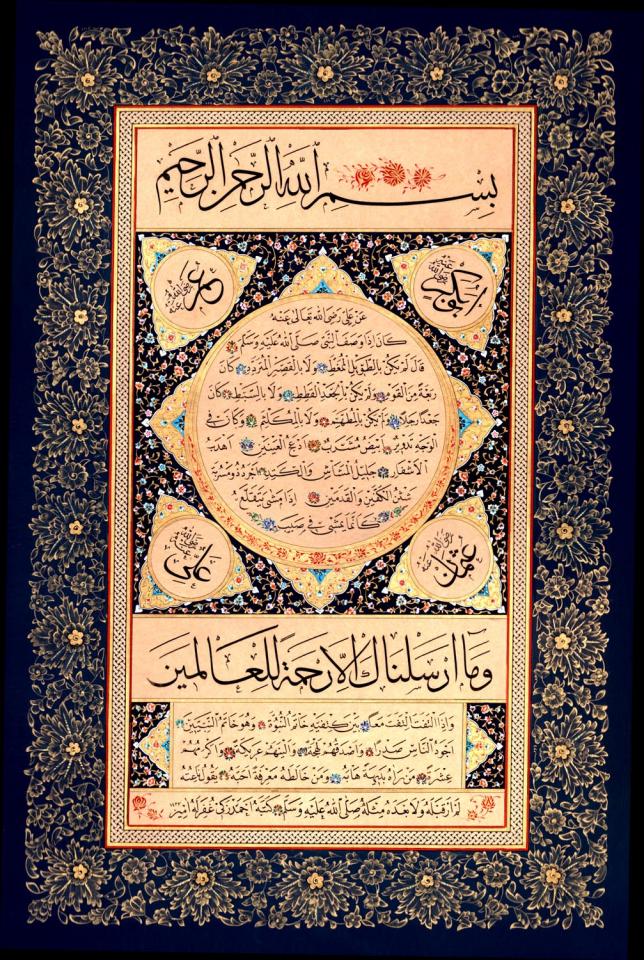 بِسْمِ ٱللهِ ٱلرَّحْمٰنِ ٱلرَّحِيمِ
ابوبكر رضى الله عنه
عمر رضى الله عنه
عَنْ عَلِيٍّ رَضِىَ اللهُ تَعَالٰى عَنْهُ
كَانَ اِذَا وَصَفَ النَّبِىَّ صَلَّى اللهُ عَلَيْهِ وَسَلَّمَ
قَالَ لَمْ يَكُنْ بِالطَّوِيلِ الْمُمَّغِطِ وَلَا بِالْقَصِيرِ الْمُتَرَدِّدِ وَكَانَ
رَبْعَةً مِنَ الْقَوْمِ وَلَمْ يَكُنْ بِالْجَعْدِ الْقَطَطِ وَلَا بِالسَّبَطِ كَانَ
جَعْدًا رَجِلًا وَلَمْ يَكُنْ بِالْمُطَهَّمِ وَلَا بِالْمُكَلْثَمِ وَكَانَ فِى
الْوَجْهِ تَدْوِيرٌ اَبْيَضُ مُشْرَبٌ اَدْعَجُ الْعَيْنَيْنِ اَهْدَبُ
الْاَشْفَارِ جَلِيلُ الْمُشَاشِ وَالْكَتَدِ اَجْرَدُ ذُو مَسْرُبَةٍ
شَثْنُ الْكَفَّيْنِ وَالْقَدَمَيْنِ اِذَا مَشٰى يَتَقَلَّعُ
كَاَنَّمَا يَمْشِى فِى صَبَبٍ
عثمان رضى الله عنه
على رضى الله عنه
وَمَا اَرْسَلْنَاكَ اِلَّا رَحْمَةً لِلْعَالَمِينَ
وَاِذَا الْتَفَتَ اِلْتَفَتَ مَعًا بَيْنَ كَتِفَيْهِ خَاتَمُ النُّبُوَّةِ وَهُوَ خَاتَمُ النَّبِيِّينَ
اَجْوَدُ النَّاسِ صَدْرًا وَاَصْدَقُهُمْ لَهْجَةً وَاَلْيَنُهُمْ عَرِيكَةً وَاَكْرَمُهُمْ
عِشْرَةً مَنْ رَاٰهُ بَدِيهَةً هَابَهُ وَمَنْ خَالَطَهُ مَعْرِفَةً اَحَبَّهُ يَقُولُ نَاعِتُهُ
لَمْ اَرَ قَبْلَهُ وَلَا بَعْدَهُ مِثْلَهُ صَلَّى اللهُ عَلَيْهِ وَسَلَّمَ كَتَبَهُ اَحْمَد زَكِى غُفِرَ لَهُ اٰمِين